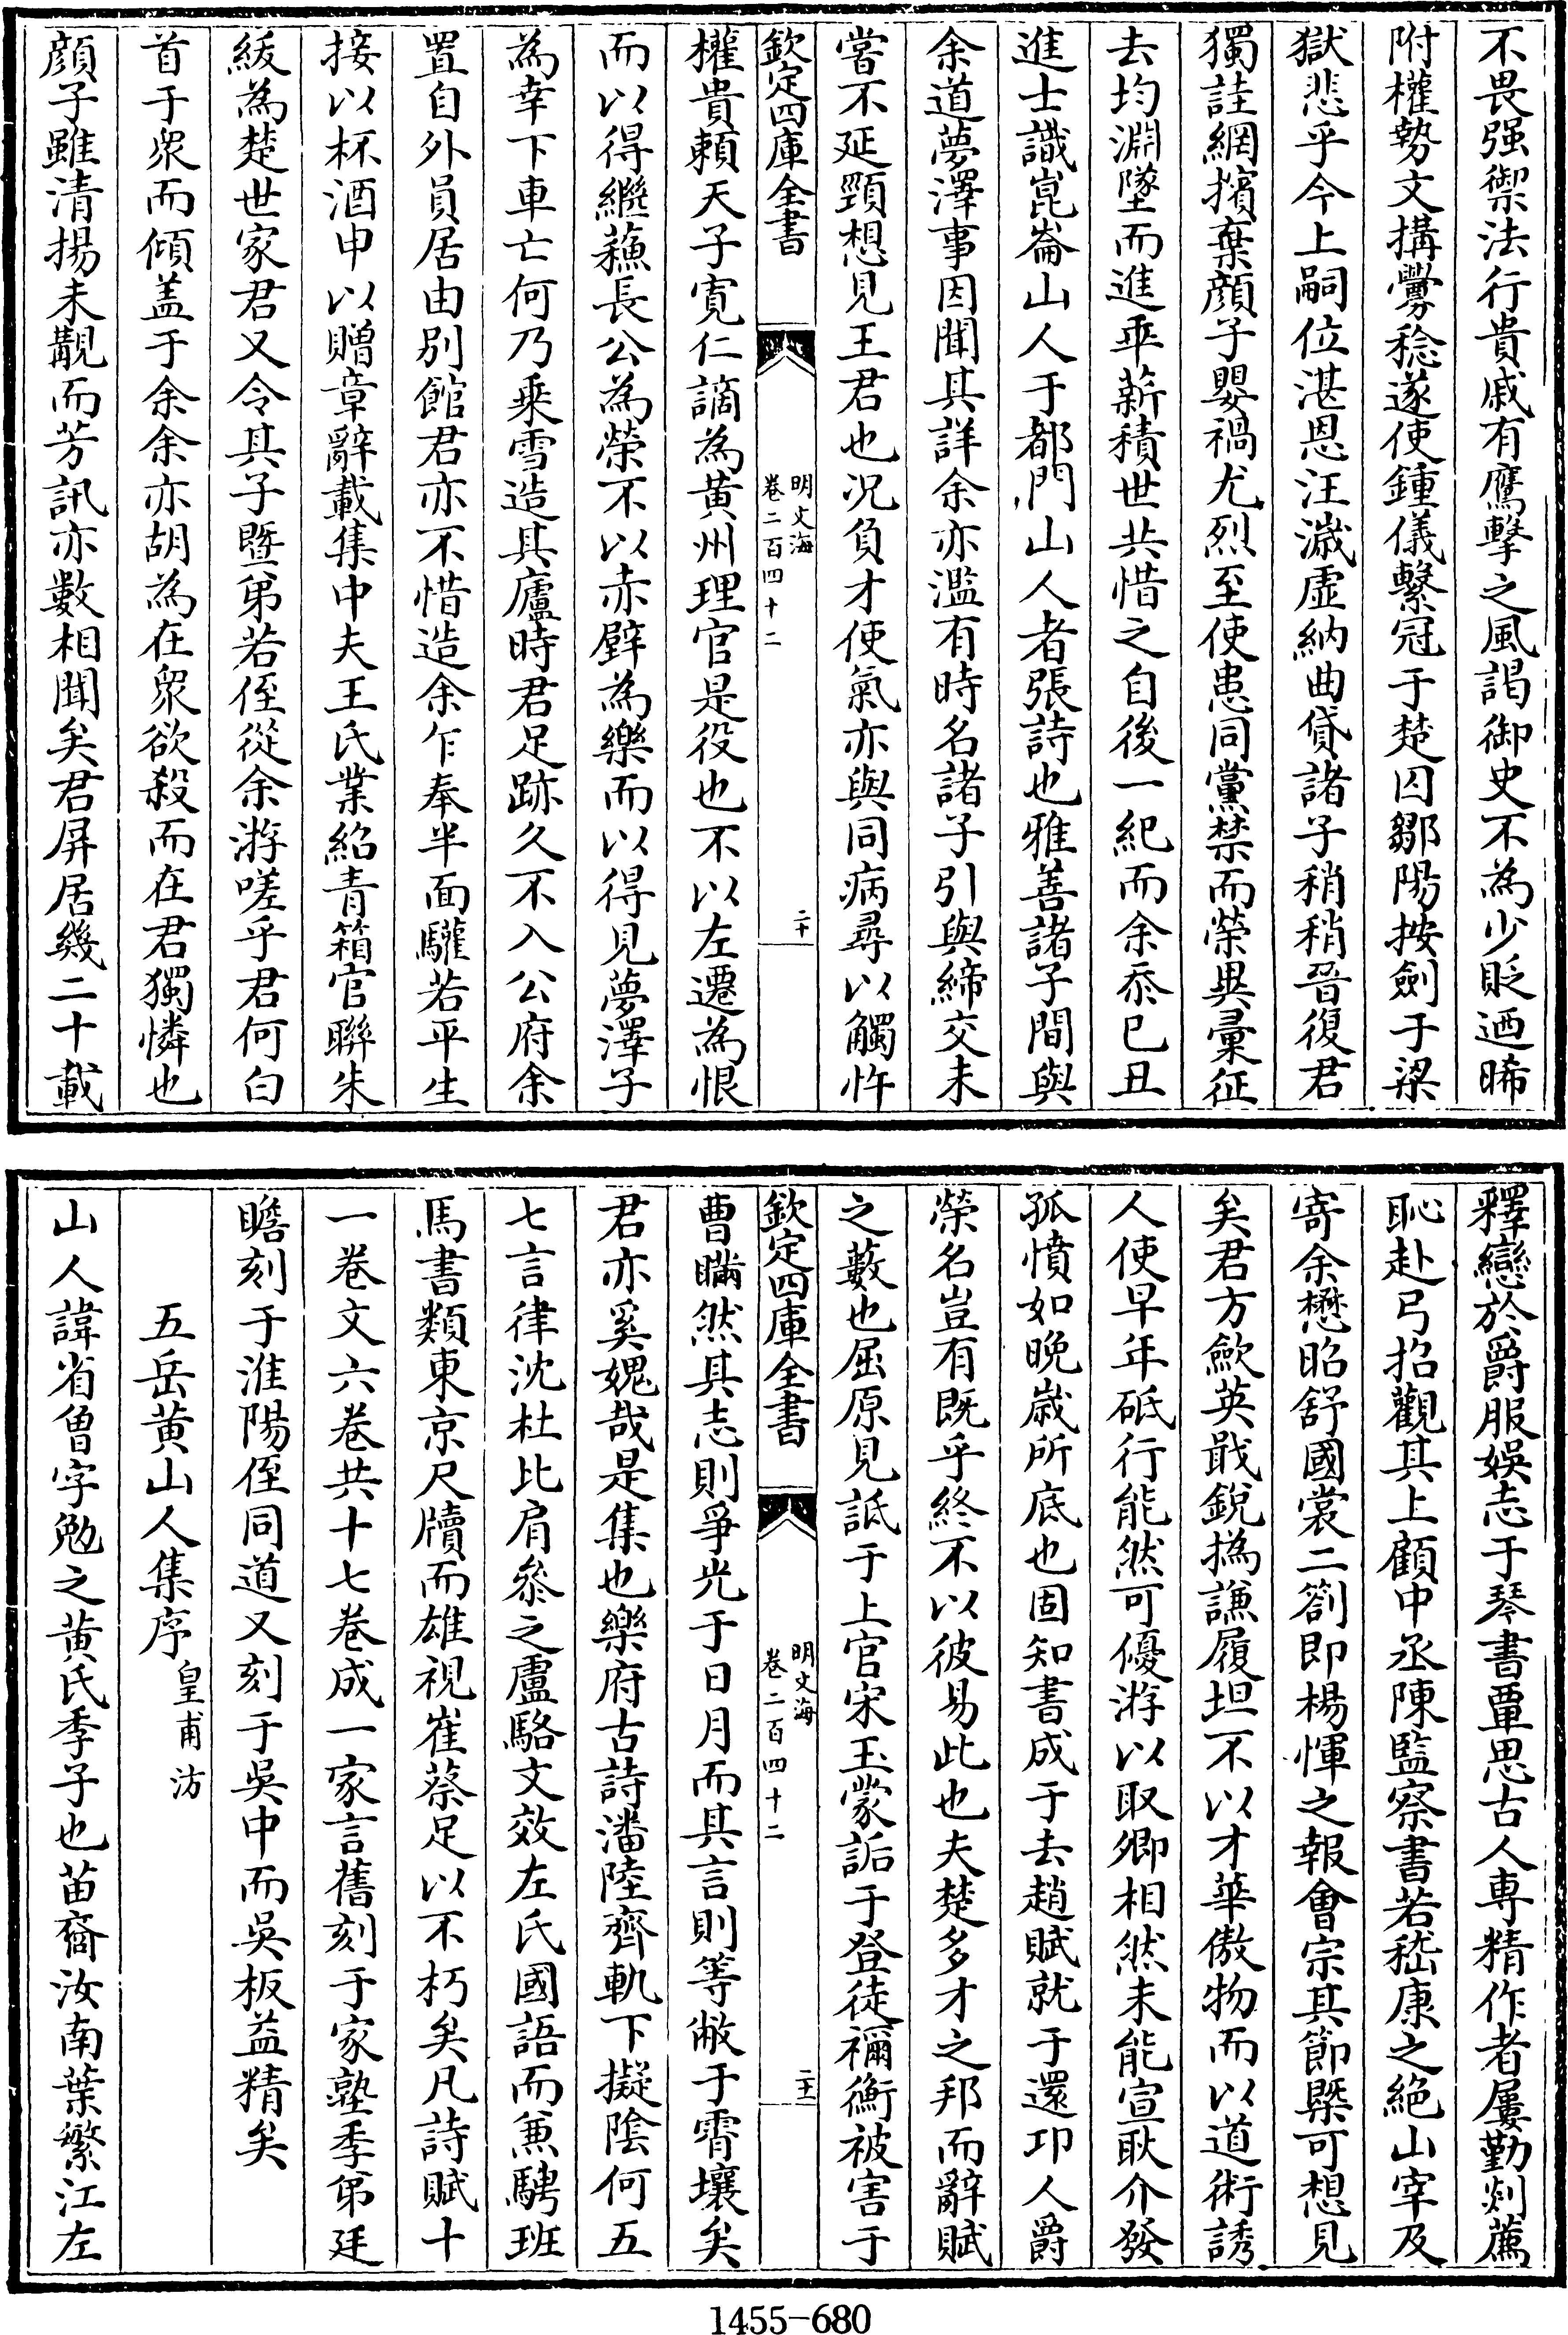 不畏强禦法行貴戚有鷹擊之風謁御史不為少貶迺晞
附權勢文搆釁稔遂使鍾儀繫冠于楚囚鄒陽按劍于梁
獄悲乎今上嗣位湛恩汪濊虛納曲貸諸子稍稍晉復君
獨詿網擯棄顏子嬰禍尤烈至使患同黨禁而榮異彙征
去均淵墜而進乖薪積世共惜之自後一紀而余忝已丑
進士識崑崙山人于都門山人者張詩也雅善諸子間與
余道夢澤事因聞其詳余亦濫有時名諸子引與締交未
嘗不延頸想見王君也况負才使氣亦與同病尋以觸忤
欽定四庫全書
明文海
卷二百四十二
二十
權貴賴天子寬仁謫為黃州理官是役也不以左遷為恨
而以得繼蘓長公為榮不以赤壁為樂而以得見夢澤子
為幸下車亡何乃乘雪造其廬時君足跡久不入公府余
置自外員居由別館君亦不惜造余乍奉半面驩若平生
接以杯酒申以贈章辭載集中夫王氏業紹青箱官聯朱
綬為楚世家君又令其子暨弟若侄從余游嗟乎君何白
首于衆而傾盖于余余亦胡為在衆欲殺而在君獨憐也
顏子雖清揚未覯而芳訊亦數相聞矣君屏居幾二十載
釋戀於爵服娛志于琴書覃思古人専精作者屢勤剡薦
恥赴弓招觀其上顧中丞陳監察書若嵇康之絕山宰及
寄余懋昭舒國裳二劄即楊惲之報會宗其節槩可想見
矣君方歛英戢銳撝謙履坦不以才華傲物而以道術誘
人使早年砥行能然可優游以取卿相然未能宣耿介發
孤憤如晚歲所底也固知書成于去趙賦就于還卭人爵
榮名豈有既乎終不以彼易此也夫楚多才之邦而辭賦
之藪也屈原見詆于上官宋玉蒙詬于登徒禰衡被害于
欽定四庫全書
明文海
卷二百四十二
二十一
曹瞞然其志則爭光于日月而其言則等敝于霄壤矣
君亦奚媿哉是集也樂府古詩潘陸齊軌下擬陰何五
七言律沈杜比肩叅之盧駱文效左氏國語而兼騁班
馬書類東京尺牘而雄視崔蔡足以不朽矣凡詩賦十
一卷文六卷共十七卷成一家言舊刻于家塾季弟廷
瞻刻于淮陽侄同道又刻于吳中而吳板益精矣
五岳黄山人集序 皇甫汸
山人諱省曾字勉之黄氏季子也苗裔汝南葉繁江左
1455-680